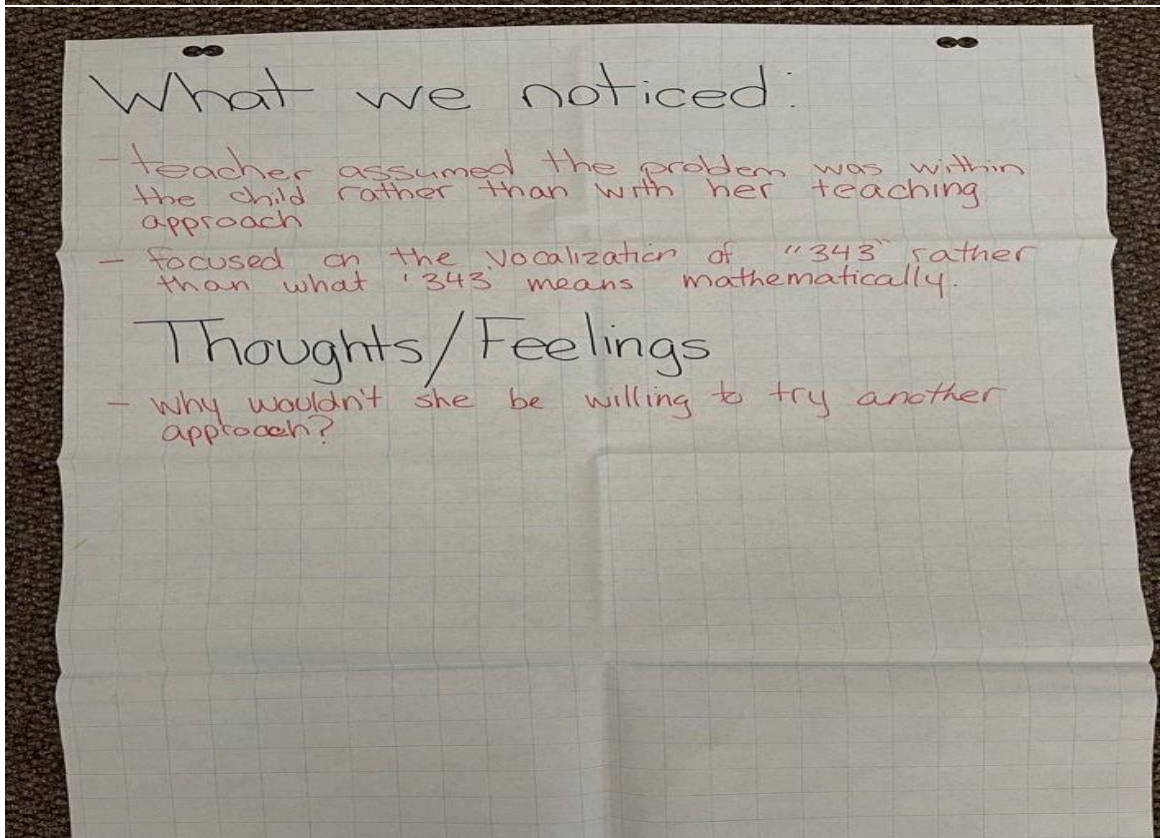 What we noticed:
- teacher assumed the problem was within
the child rather than with her teaching
approach
- focused on the vocalization of "343" rather
than what '343' means mathematically.
Thoughts/Feelings
- why wouldn't she be willing to try another
approach?